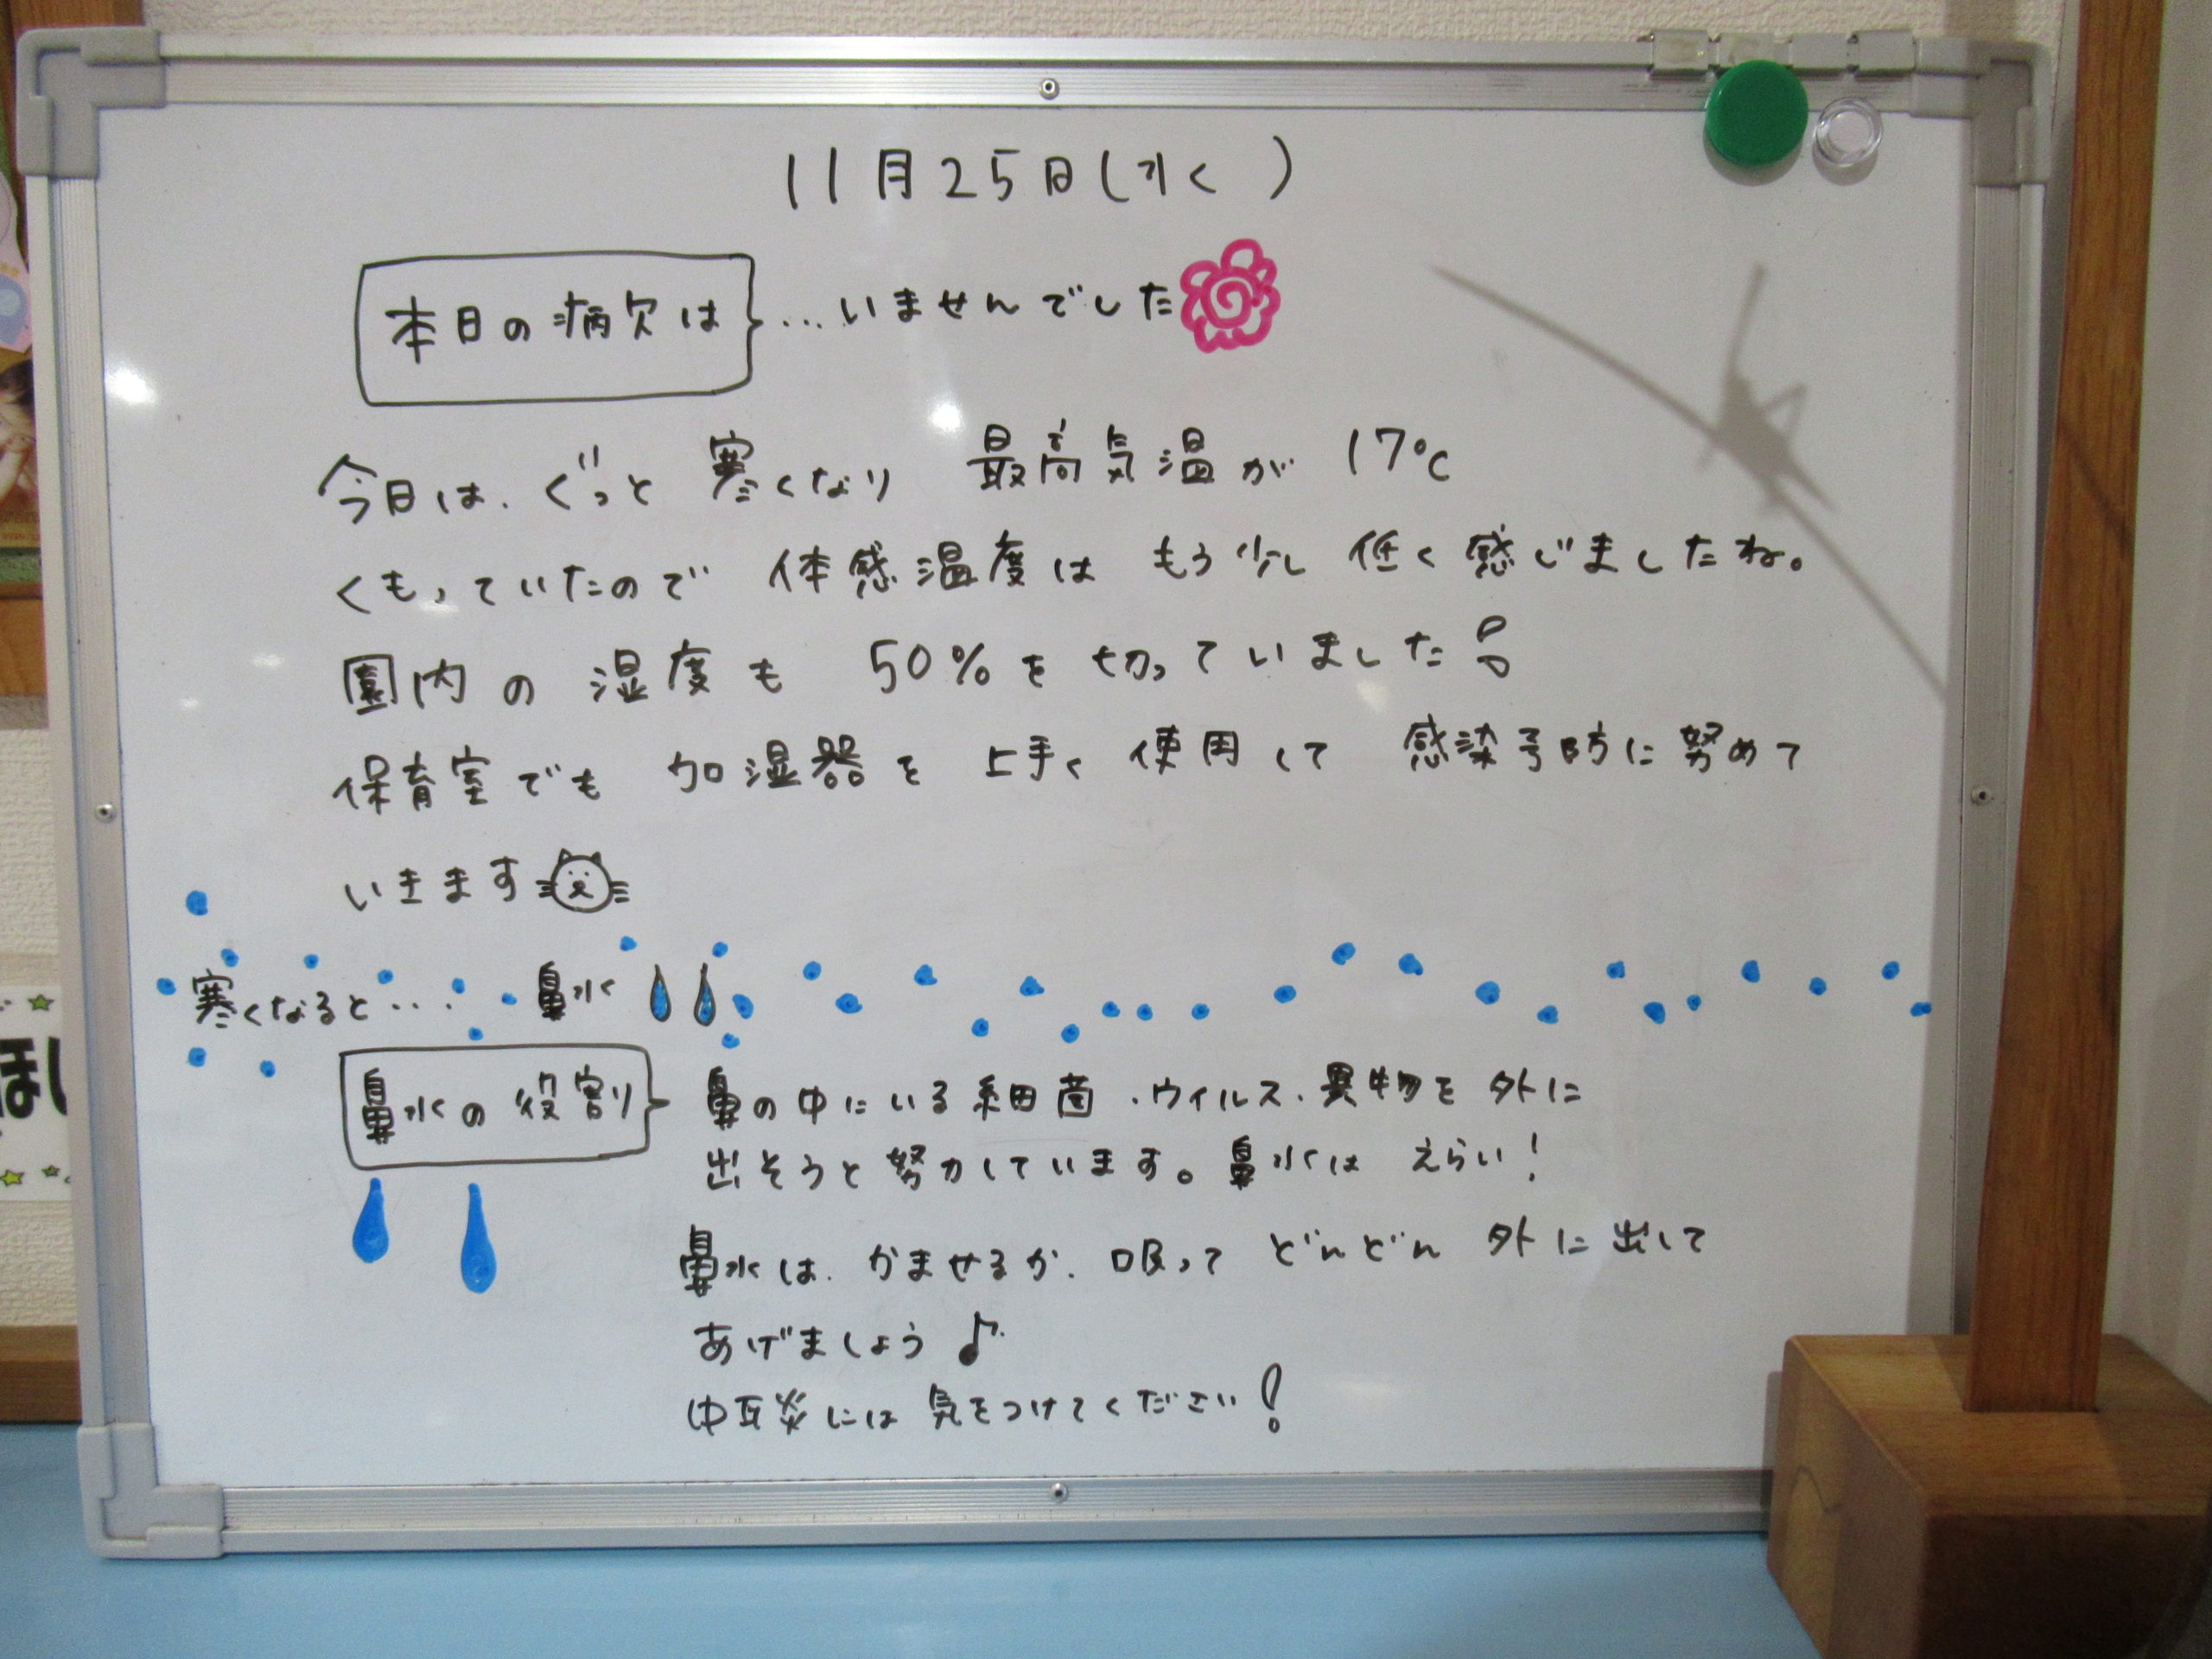 11月25日(水 )
本日の病欠は …いませんでした
今日は、ぐっと 寒くなり 最高気温が 17℃
くもっていたので 体感温度は もう少し 低く感じましたね。
園内の 湿度も 50%を切っていました!
保育室でも 加湿器を 上手く 使用して 感染予防に努めて
いきます
寒くなると・・・ 鼻水
鼻水の役割り 鼻の中にいる細菌・ウイルス・異物を外に
出そうと努力しています。鼻水は えらい!
鼻水は、かませるか、吸って どんどん 外に出して
あげましょう♪
中耳炎には 気をつけてください!
ほし